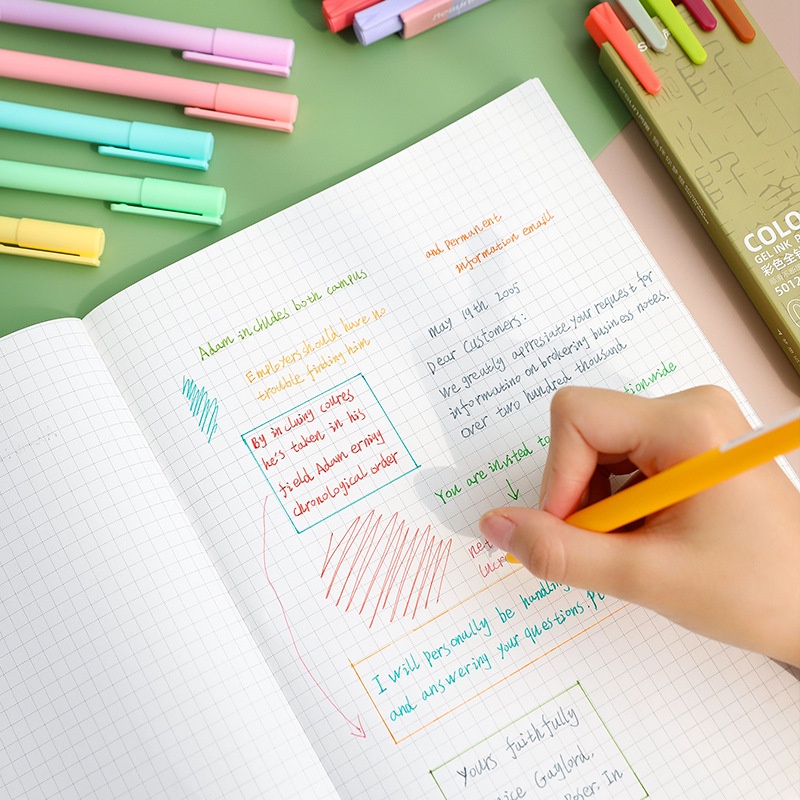 Adam includes both campus
Employers should have no
trouble finding him
By incluing coures
he's taken in his
field Adam erniny
chronological order
and permanent
information emaill
may 19th 2005
Dear Customers:
We greatly appreciate your request for
informatino on brokering business notes.
over two hundred thousand
You are invited to
I will personally be handling
and answering your questions.
Yours faithfully
Gaylord,
In
COLO
GEL INK
彩色全
5012